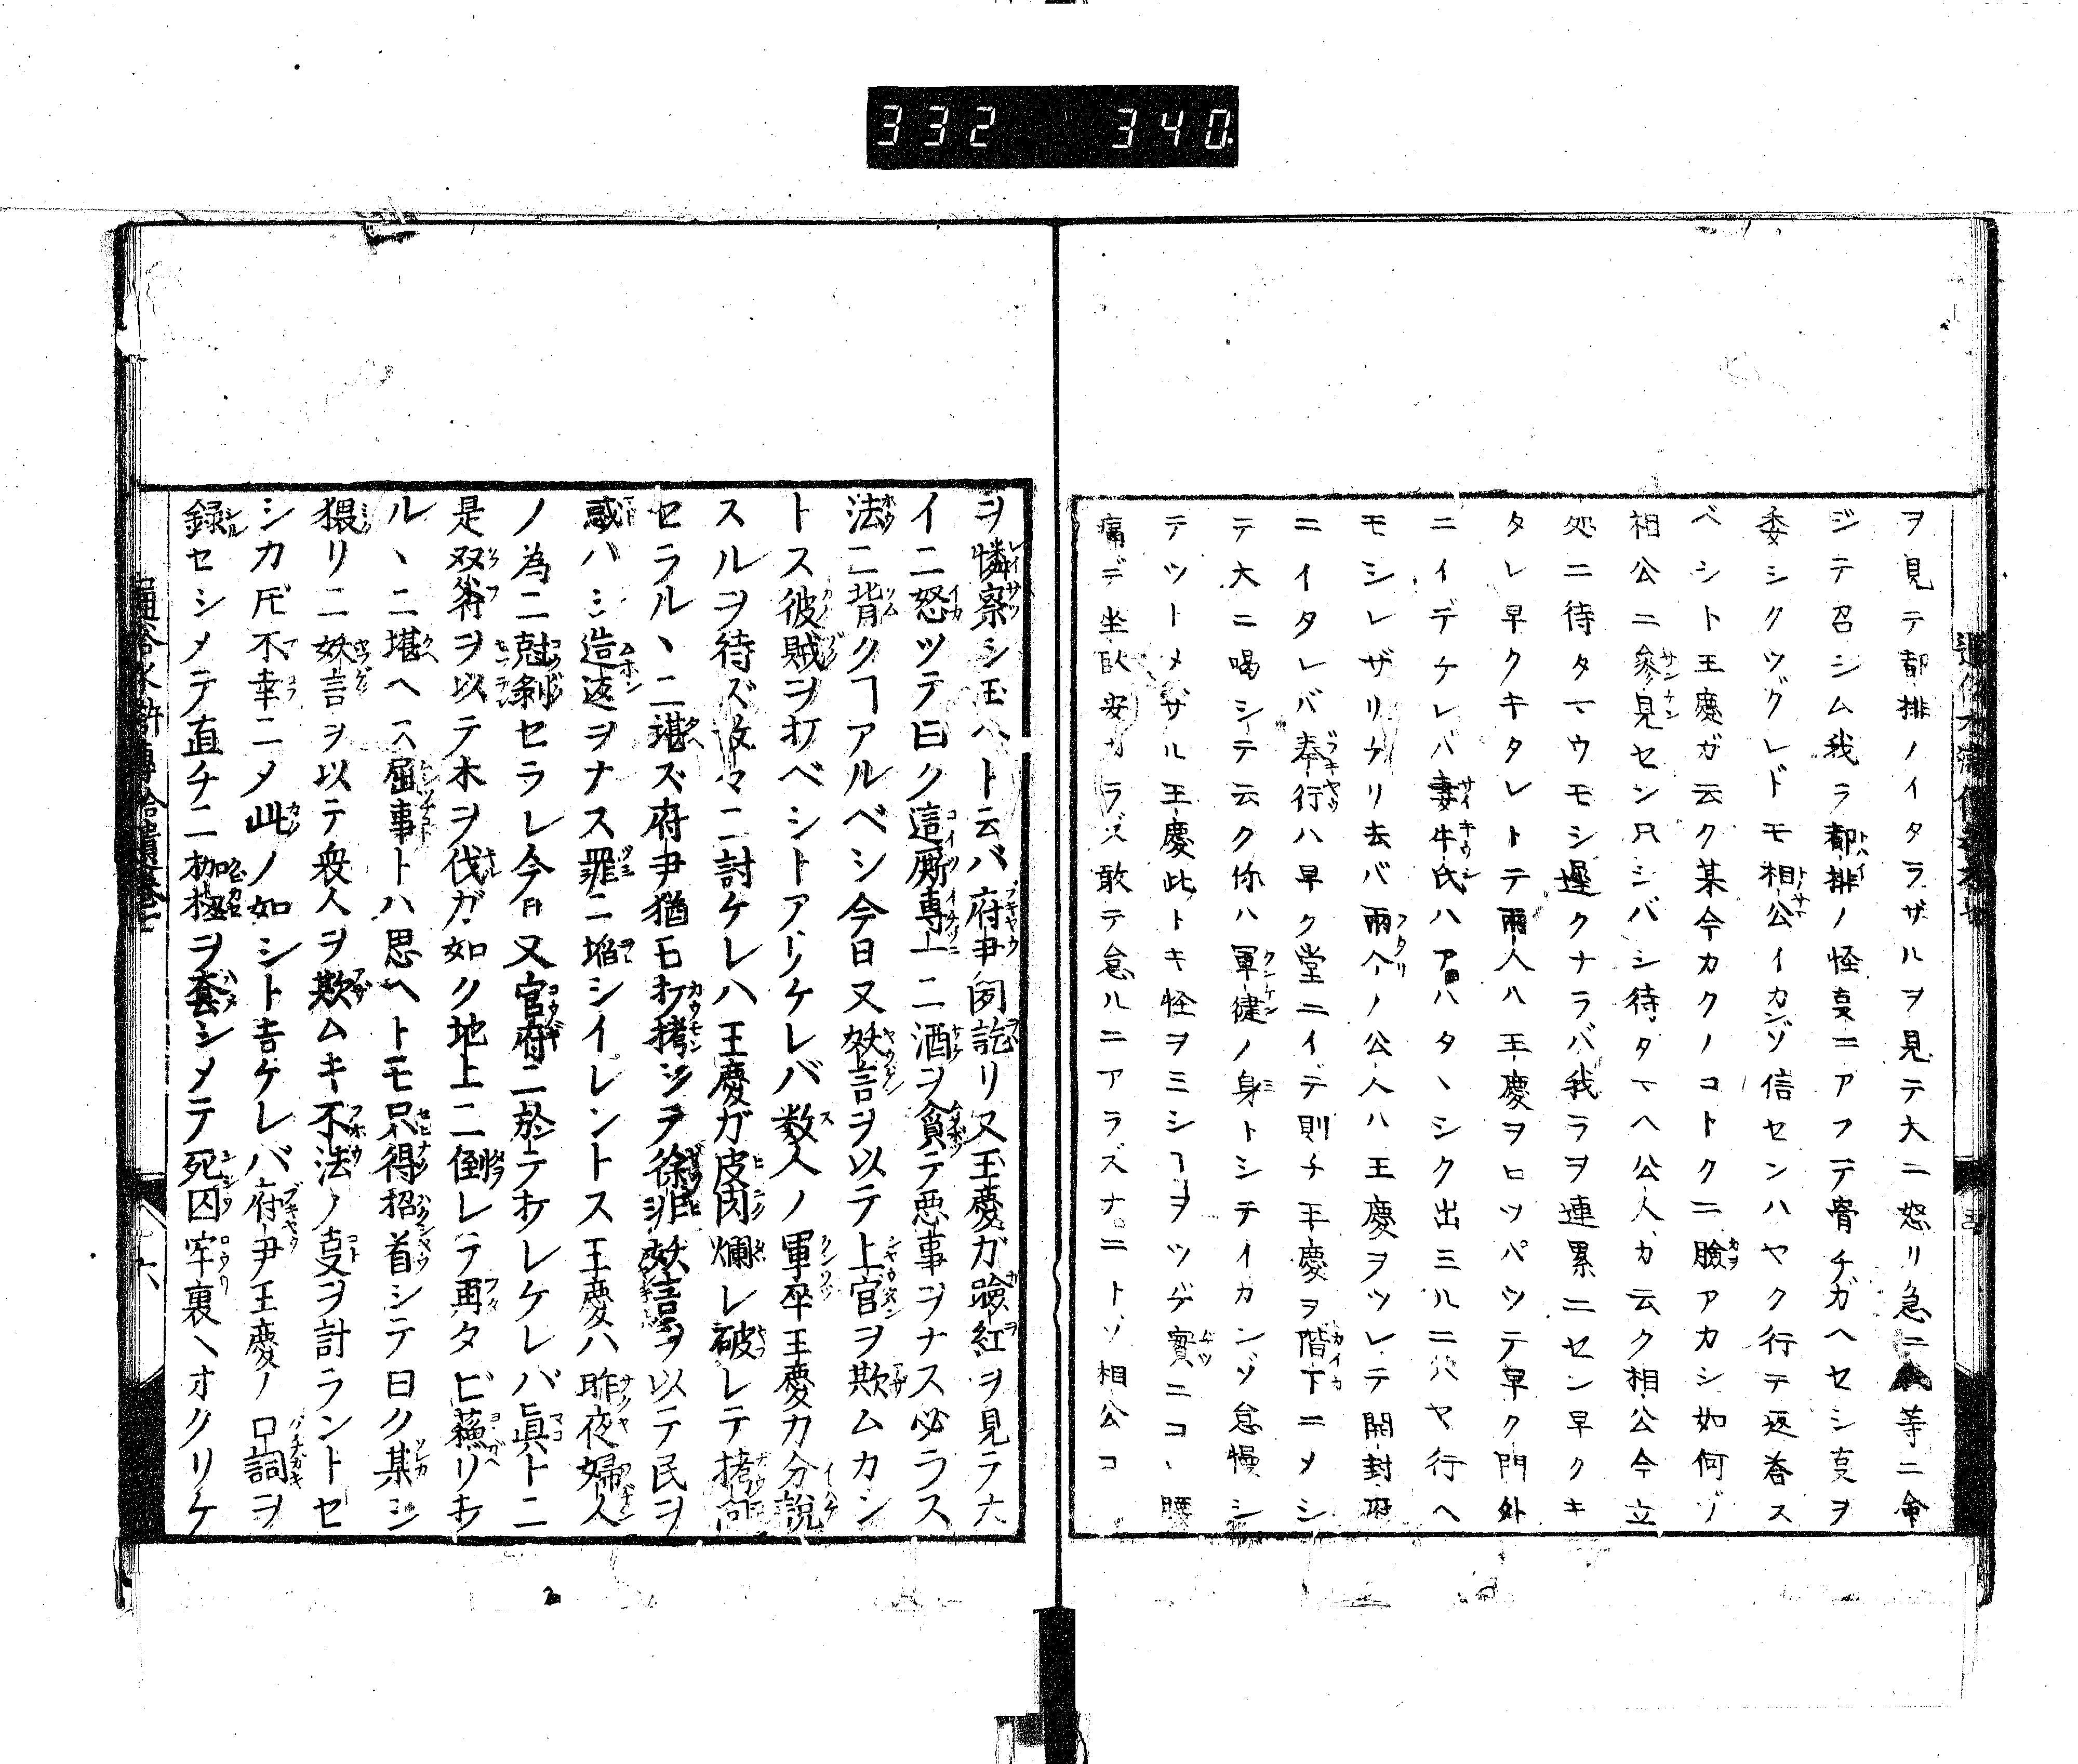 332 340
ヲ見テ都排ノイタラザルヲ見テ大ニ怒リ急ニ等ニ命
ジテ召シム我ラ都排ノ怪叓ニアフテ膂チガヘセシ叓ヲ
委シクツグレドモ相公イカンゾ信センハヤク行テ返答ス
ベシト王慶ガ云ク某今カクノコトクニ臉アカシ如何ゾ
相公ニ參見セン只シバシ待タマヘ公人カ云ク相公今立
処ニ待タマウモシ遲クナラバ我ラヲ連累ニセン早クキ
タレ早クキタレトテ兩人ハ王慶ヲヒツパツテ早ク門外
ニイデケレバ妻牛氏ハアハタヽシク出ミルニハヤ行ヘ
モシレザリケリ去バ兩个ノ公人ハ王慶ヲツレテ開封府
ニイタレバ奉行ハ早ク堂ニイデ則チ王慶ヲ階下ニメシ
テ大ニ喝シテ云ク你ハ軍健ノ身トシテイカンゾ怠慢シ
テツトメザル王慶此トキ怪ヲミシヿヲツゲ實ニコヽ腰
痛デ坐臥安カラズ敢テ怠ルニアラズナニトゾ相公コ
ヲ憐察シ玉ヘト云バ府尹訖リ又王慶ガ臉紅ヲ見テ大
イニ怒ツテ曰ク這厮專上ニ酒ヲ貪テ悪事ヲナス必ラス
法ニ背クヿアルベシ今日又妖言ヲ以テ上官ヲ欺ムカン
トス彼賊ヲ打ベシトアリケレバ数人ノ軍卒王慶カ分説
スルヲ待ズ散々ニ討ケレハ王慶ガ皮肉爛レ破レテ拷問
セラルヽニ堪ズ府尹猶モ打拷シヲ徐非妖言ヲ以テ民ヲ
惑ハシ造返ヲナス罪ニ焰シイレントス王慶ハ昨夜婦人
ノ為ニ尅剝セラレ今日又官府ニ於テ打レケレバ眞トニ
是双斧ヲ以テ木ヲ伐ガ如ク地上ニ倒レテ再タビ蘓リ打
ルヽニ堪ヘス屈事トハ思ヘトモ只得招首シテ曰ク某シ
猥リニ妖言ヲ以テ衆人ヲ欺ムキ不法ノ叓ヲ計ラントセ
シカ𪜈不幸ニメ此ノ如シト告ケレバ府尹王慶ノ口詞ヲ
録セシメテ直チニ枷杻ヲ套シメテ死囚牢裏ヘオクリケ
通俗水滸傳拾遺巻七
六